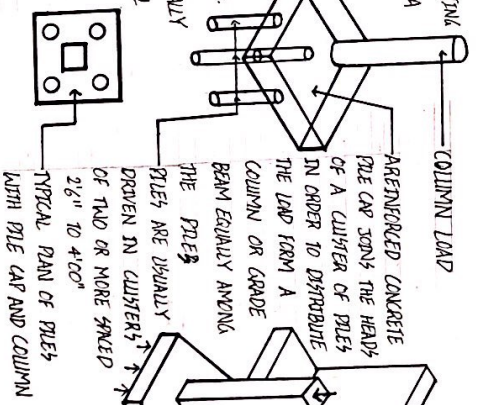 ING
A
ALLY
COLUMN LOAD
AREINFORCED CONCRETE
PILE CAP JOINS THE HEADS
OF A CLUSTER OF PILES
IN ORDER TO DISTRIBUTE
THE LOAD FORM A
COLUMN OR GRADE
BEAM EQUALLY AMONG
THE PILES
PILES ARE USUALLY
DRIVEN IN CLUSTERS
OF TWO OR MORE SPACED
2'6" TO 4'00"
TYPICAL PLAN OF PILES
WITH PILE CAP AND COLUMN